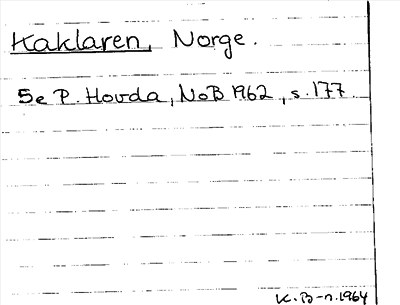 Kaklaren, Norge.
Se P. Hovda, NoB 1962, s. 177.
K. B-n. 1964